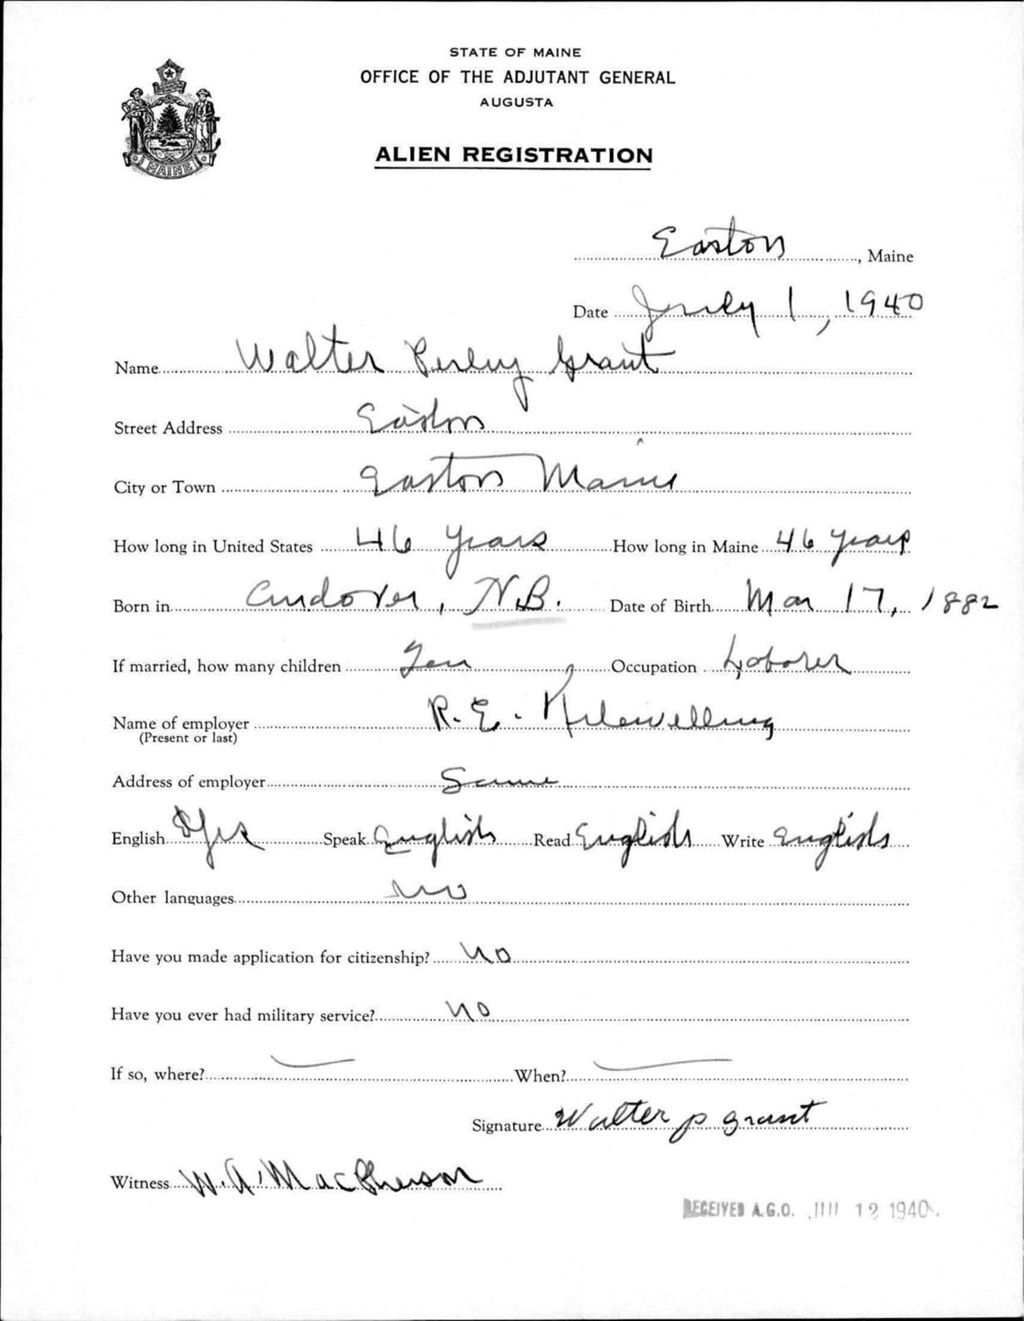 STATE OF MAINE
OFFICE OF THE ADJUTANT GENERAL
AUGUSTA
ALIEN REGISTRATION
MAINE
Easton, Maine
Date July 1, 1940
Name Walter Perley Grant
Street Address Easton
City or Town Easton Maine
How long in United States 46 years How long in Maine 46 years
Born in Andover, N.B. Date of Birth Mar 17, 1882
If married, how many children Ten Occupation Laborer
Name of employer R. E.
(Present or last)
Address of employer Same
English Yes Speak English Read English Write English
Other languages no
Have you made application for citizenship? no
Have you ever had military service? no
If so, where? When?
Signature Walter P Grant
Witness W. A. MacPherson
RECEIVED A.G.O. 12 1940